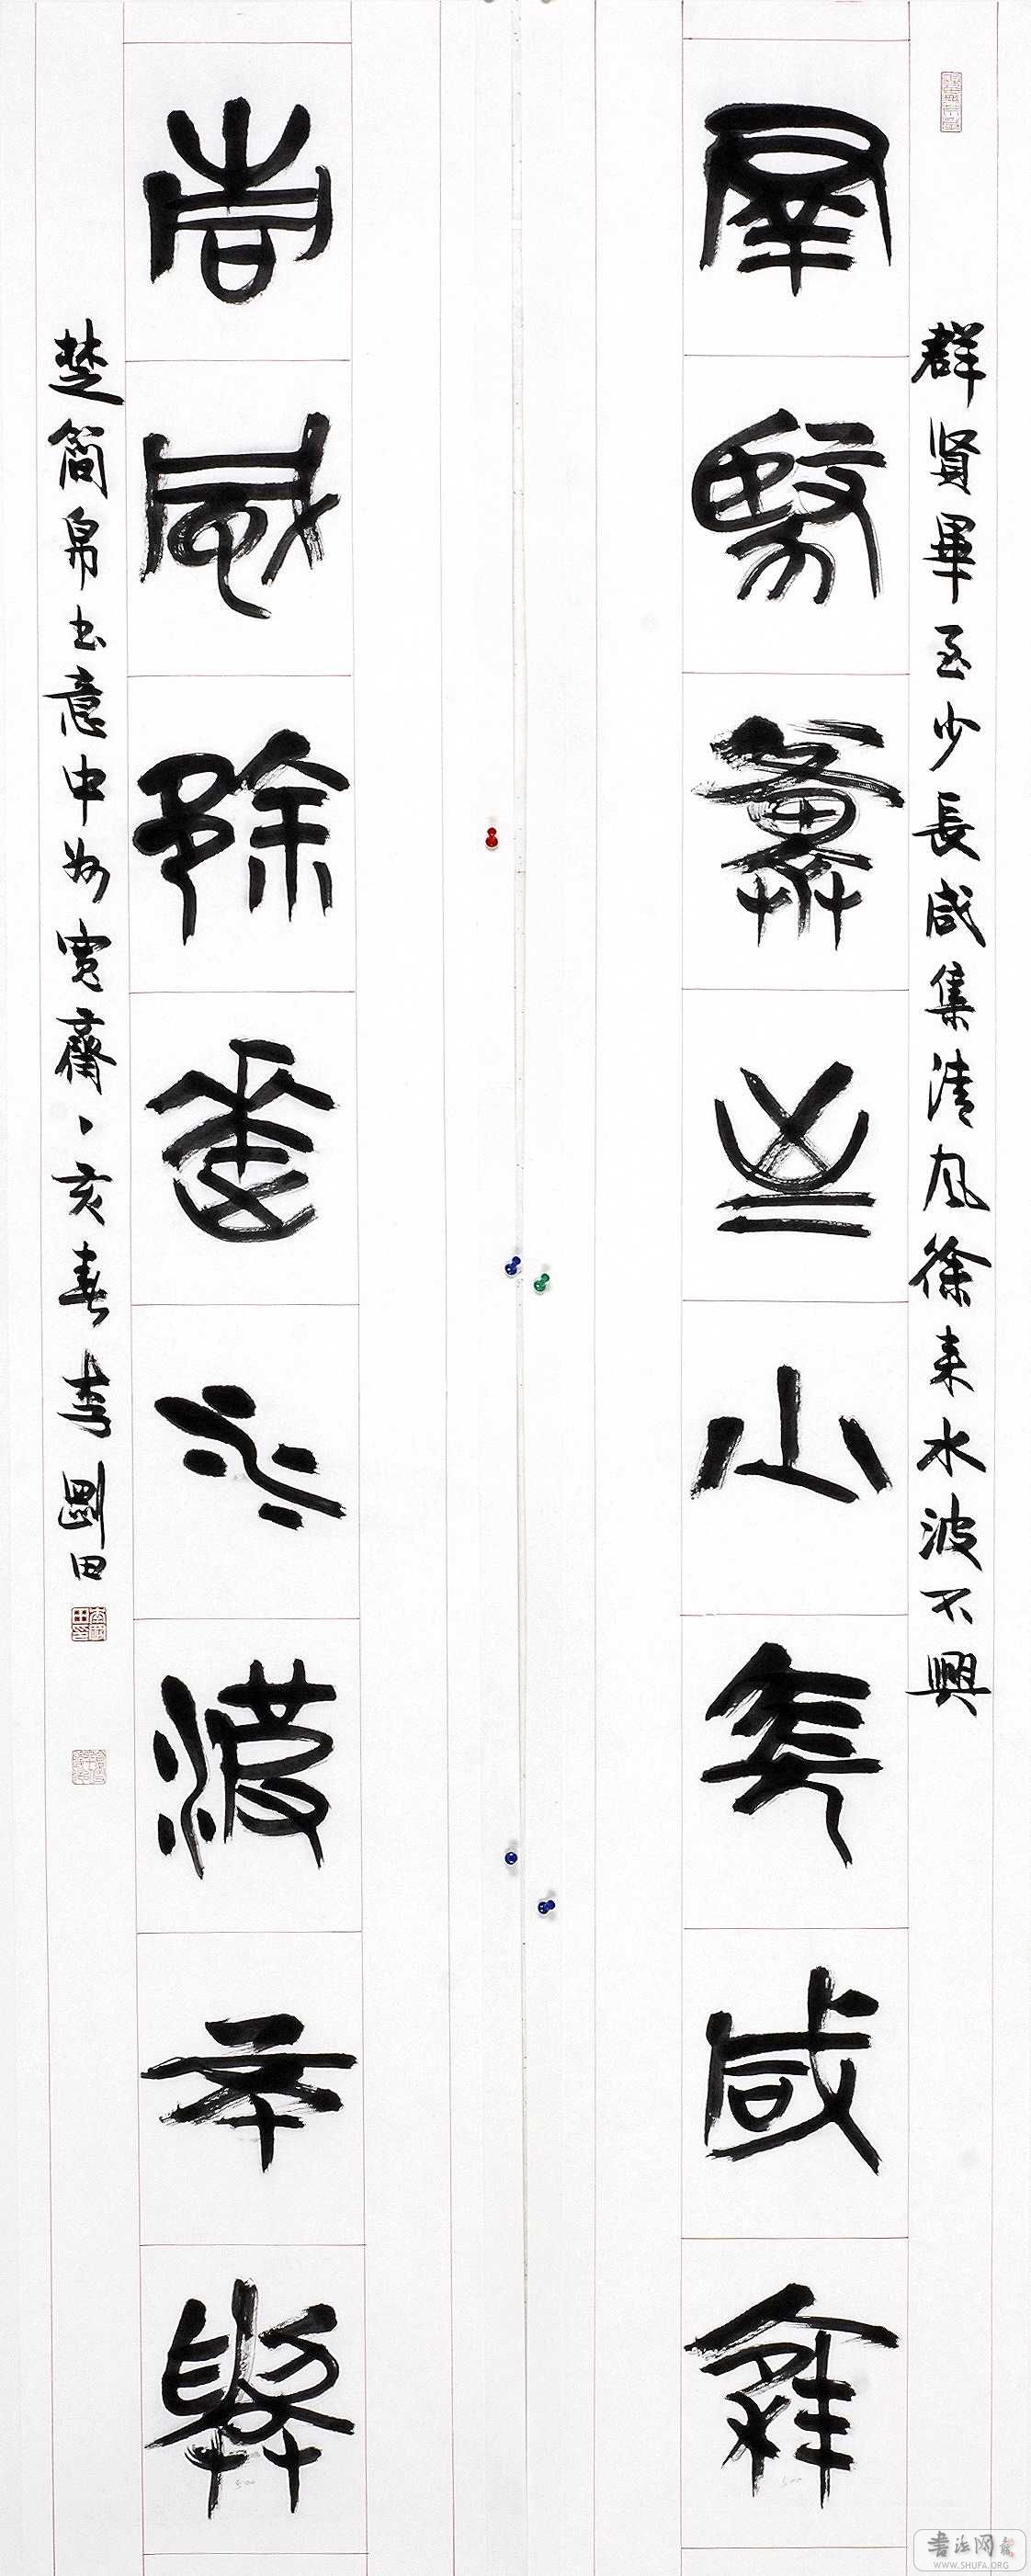 群賢畢至少長咸集清風徐來水波不興
群賢畢至少長咸集
清風徐來水波不興
楚簡帛书意中州寛齋丶亥春李剛田
书法网
WWW.SHUFA.ORG